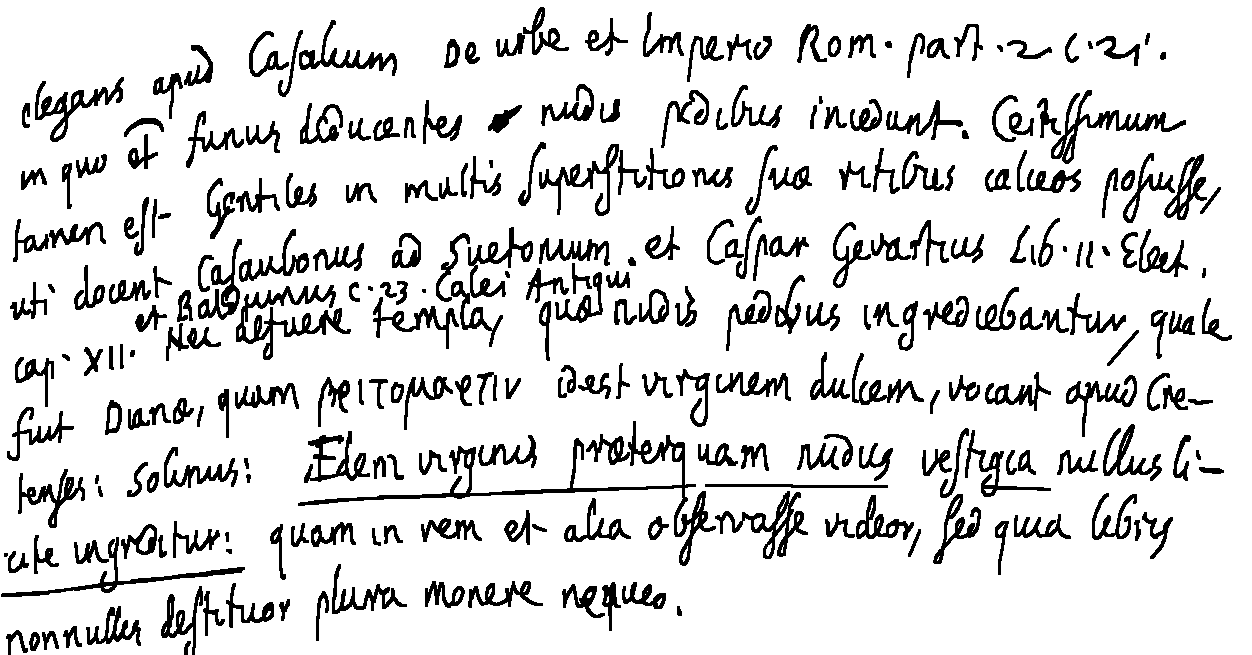 elegans apud Casalium De urbe et Imperio Rom. part. 2 c. 21.
in quo et funus deducentes nudis pedibus incedunt. Certissimum
tamen est Gentiles in multis superstitionis suæ ritibus calceos posuisse,
uti docent Casaubonus ad Suetonium. et Caspar Gevartius Lib. II. Elect.
et Balduinus c. 23. Calcei Antiqui
cap. XII. Nec defuere templa, quæ nudis pedibus ingrediebantur, quale
fuit Dianæ, quam βριτομαρτιν idest virginem dulcem, vocant apud Cre-
tenses: Solinus: Edem virginis præterquam nudus vestigia nullus li-
cite ingreditur: quam in rem et alia observasse videor, sed quia libris
nonnullis destituor plura monere nequeo.